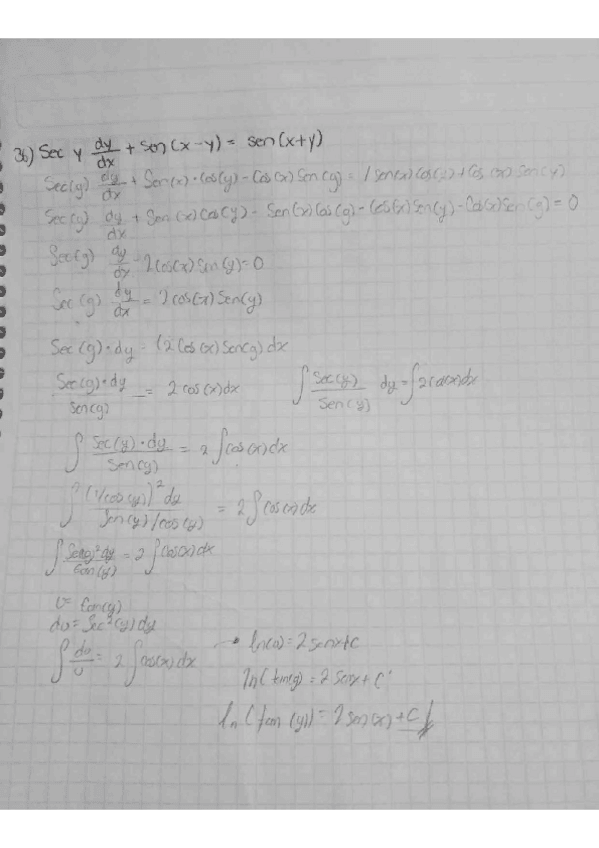 36) Sec y dy/dx + sen(x-y) = sen(x+y)
Sec(y) dy/dx + Sen(x)·Cos(y) - Cos(x)Sen(y) = sen(x)cos(y) + Cos(x) Sen(y)
Sec(y) dy/dx + Sen(x)Cos(y) - Sen(x)Cos(y) - Cos(x)Sen(y) - Cos(x)Sen(y) = 0
Sec(y) dy/dx - 2Cos(x)Sen(y) = 0
Sec(y) dy/dx = 2cos(x)Sen(y)
Sec(y)·dy = (2Cos(x)Sen(y)dx
Sec(y)·dy/Sen(y) = 2cos(x)dx ∫ Sec(y)/Sen(y) dy = ∫2cos(x)dx
∫ Sec(y)·dy/Sen(y) = 2∫cos(x)dx
∫ (1/cos(y))² dy/Sen(y)/cos(y) = 2∫cos(x)dx
∫ Sec(y)² dy/tan(y) = 2∫cos(x)dx
U = tan(y)
du = Sec²(y)dy
∫ du/U = 2∫cos(x)dx → ln(u) = 2senx+c
ln(tan(y)) = 2Senx + C
ln(tan(y)) = 2sen(x)+C